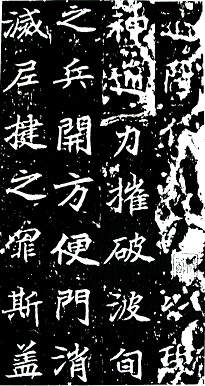 現
神通力摧破波旬
之兵開方便門消
滅尼揵之罪斯盖